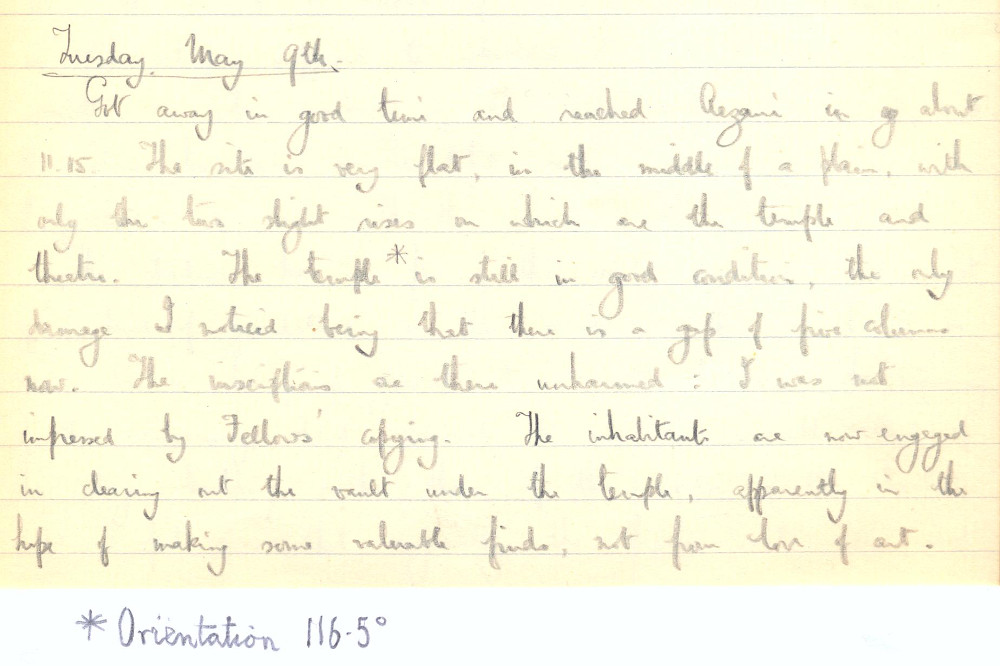 Tuesday May 9th.
Got away in good time and reached Aezani in about
11.15. The site is very flat, in the middle of a plain, with
only the two slight rises on which are the temple and
theatre. The temple * is still in good condition, the only
damage I noticed being that there is a gap of five columns
now. The inscriptions are there unharmed : I was not
impressed by Fellows' copying. The inhabitants are now engaged
in clearing out the vault under the temple, apparently in the
hope of making some valuable finds, not from love of art.
* Orientation 116.5°